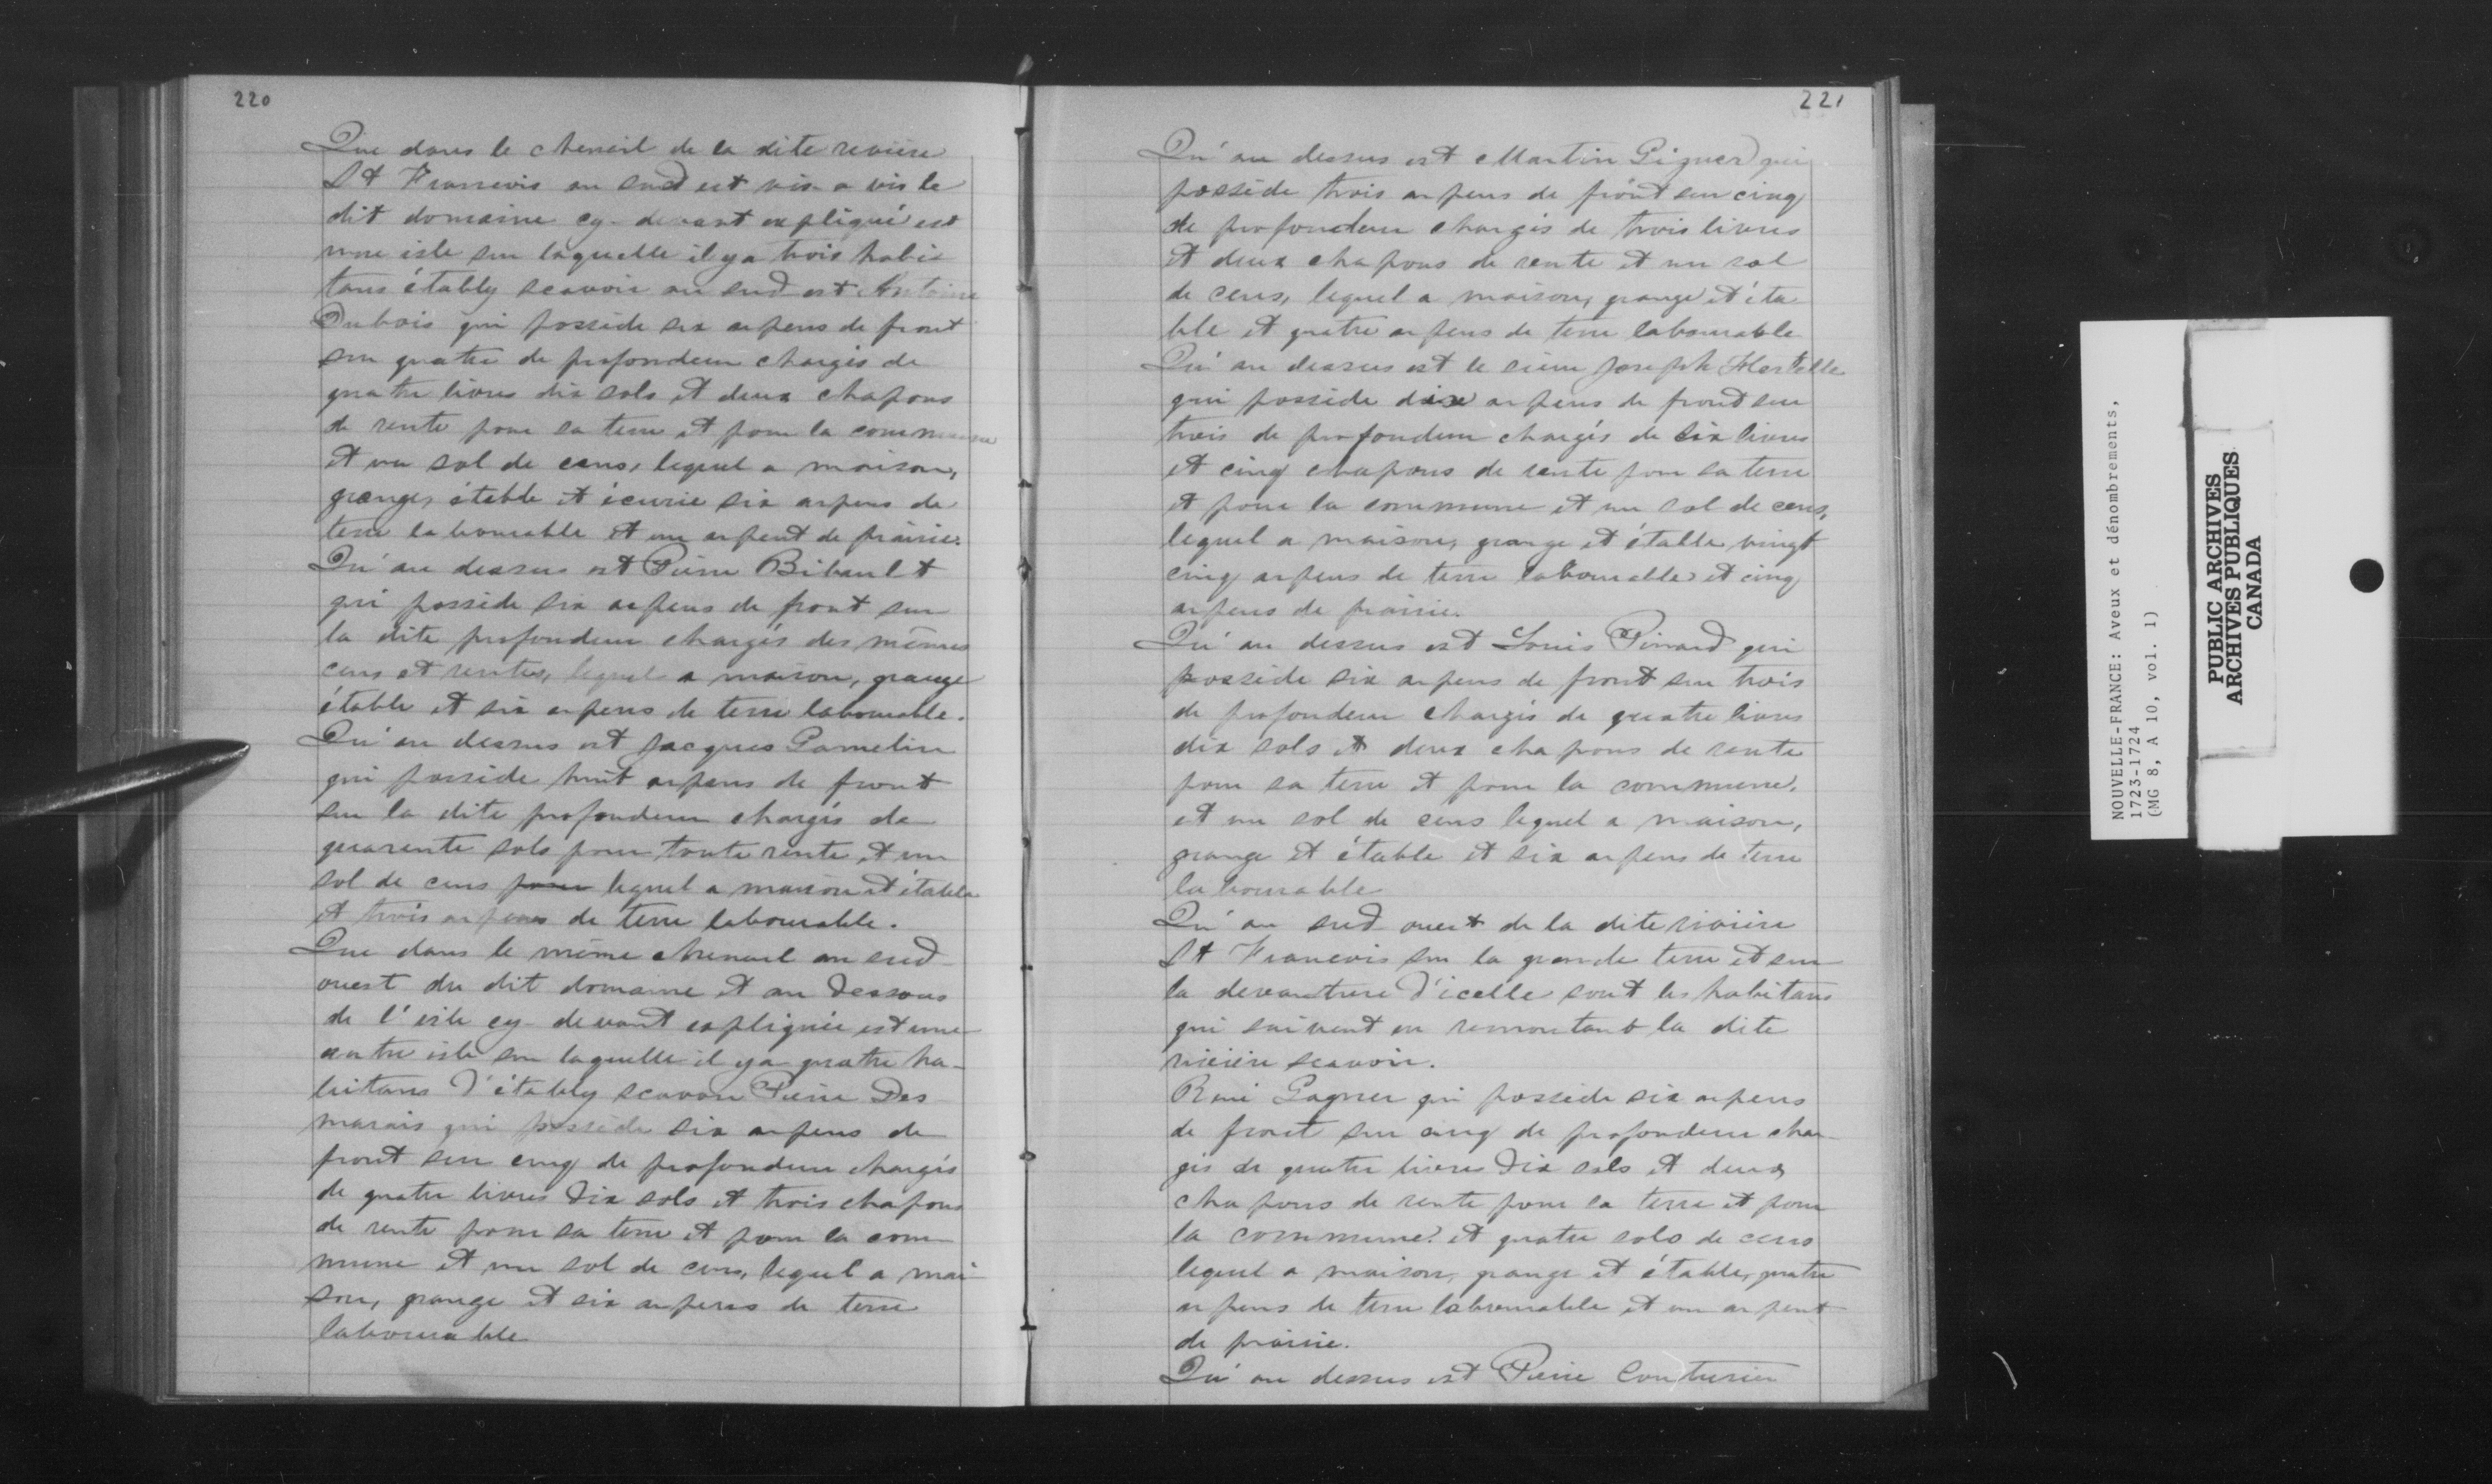 220
Que dans le chenail de la dite rivière
St Francois au sud est vis a vis le
dit domaine cy-devant expliqué est
une isle sur laquelle il y a trois habi
tans étably scavoir au sud est Antoine
Dubois qui possède six arpens de front
sur quatre de profondeur chargés de
quatre livres dix sols et deux chapons
de rente pour sa terre et pour la commune
et un sol de cens, lequel a maison,
grange, étable et écurie six arpens de
terre labourable et un arpent de prairie.
Qu'au dessus est Pierre Bibault
qui possède six arpens de front sur
la dite profondeur chargés des mêmes
cens et rentes, lequel a maison, grange
étable et six arpens de terre labourable.
Qu'au dessus est Jacques Gamelin
qui possède huit arpens de front
sur la dite profondeur chargés de
quarante sols pour toute rente et un
sol de cens pour lequel a maison et étable
et trois arpens de terre labourable.
Que dans le même chenail au sud
ouest du dit domaine et au dessous
de l'isle cy-devant expliquée est une
autre isle sur laquelle il y a quatre ha-
bitans d'étably scavoir Pierre Des
marais qui possède six arpens de
front sur cinq de profondeur chargés
de quatre livres dix sols et trois chapons
de rente pour sa terre et pour la com
mune et un sol de cens, lequel a mai
son, grange et six arpens de terre
labourable
221
Qu'au dessus est Martin Giguer qui
possède trois arpens de front sur cinq
de profondeur chargés de trois livres
et deux chapons de rente et un sol
de cens, lequel a maison, grange et éta
ble et quatre arpens de terre labourable
Qu'au dessus est le sieur Joseph Hertelle
qui possède dix arpens de front sur
trois de profondeur chargés de six livres
et cinq chapons de rente pour sa terre
et pour la commune et un sol de cens,
lequel a maison, grange et étable vingt
cinq arpens de terre labourable et cinq
arpens de prairie.
Qu'au dessus est Louis Pinard qui
possède six arpens de front sur trois
de profondeur chargés de quatre livres
dix sols et deux chapons de rente
pour sa terre et pour la commune,
et un sol de cens lequel a maison,
grange et étable et six arpens de terre
labourable
Qu'au sud ouest de la dite rivière
St Francois sur la grande terre et sur
la devanture d'icelle sont les habitans
qui suivent en remontant la dite
rivière scavoir.
René Gagner qui possède six arpens
de front sur cinq de profondeur char
gés de quatre livres dix sols et deux
chapons de rente pour sa terre et pour
la commune et quatre sols de cens
lequel a maison, grange et étable, quatre
arpens de terre labourable et un arpent
de prairie.
Qu'au dessus est Pierre Couturier
NOUVELLE-FRANCE: Aveux et dénombrements,
1723-1724
(MG 8, A 10, vol. 1)
PUBLIC ARCHIVES
ARCHIVES PUBLIQUES
CANADA